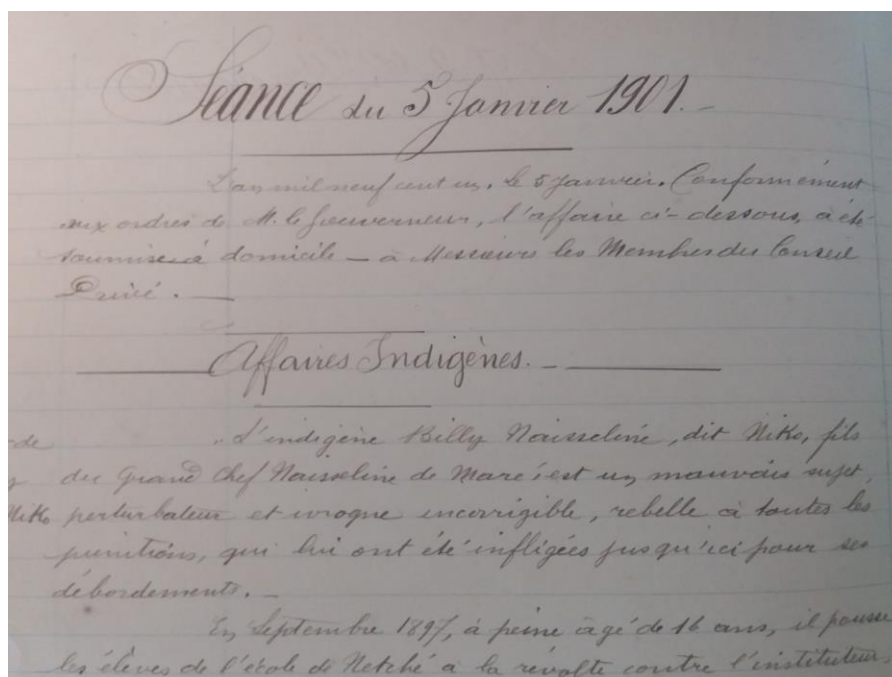 Séance du 5 Janvier 1901. -
L'an mil neuf cent un, le 5 Janvier. Conformément
aux ordres de M. le Gouverneur, l'affaire ci-dessous, a été
soumise à domicile - à Messieurs les Membres du Conseil
Privé. -
Affaires Indigènes. -
"L'indigène Billy Naisseline, dit Niko, fils
du Grand Chef Naisseline de Maré, est un mauvais sujet,
Niko perturbateur et ivrogne incorrigible, rebelle à toutes les
punitions, qui lui ont été infligées jusqu'ici pour ses
débordements. -
En Septembre 1897, à peine âgé de 16 ans, il pousse
les élèves de l'école de Netché à la révolte contre l'instituteur